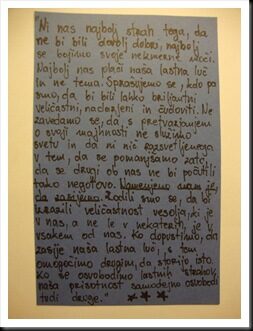 "Ni nas najbolj strah tega, da
ne bi bili dovolj dobri, najbolj
se bojimo svoje neizmerne moči.
Najbolj nas plaši naša lastna luč
in ne tema. Sprašujemo se, kdo pa
smo, da bi bili lahko briljantni
veličastni, nadarjeni in čudoviti. Ne
zavedamo se, da s pretvarjanjem
o svoji majhnosti ne služimo
svetu in da ni nič razsvetljenega
v tem, da se pomanjšamo zato,
da se drugi ob nas ne bi počutili
tako negotovo. Namenjeno nam je,
da zasijemo. Rodili smo se, da bi
izrazili veličastnost vesolja, ki je
v nas, a ne le v nekaterih, je v
vsakem od nas. Ko dopustimo, da
zasije naša lastna luč, s tem
omogočimo drugim, da storijo isto.
Ko se osvobodimo lastnih strahov,
naša prisotnost samodejno osvobodi
tudi druge."